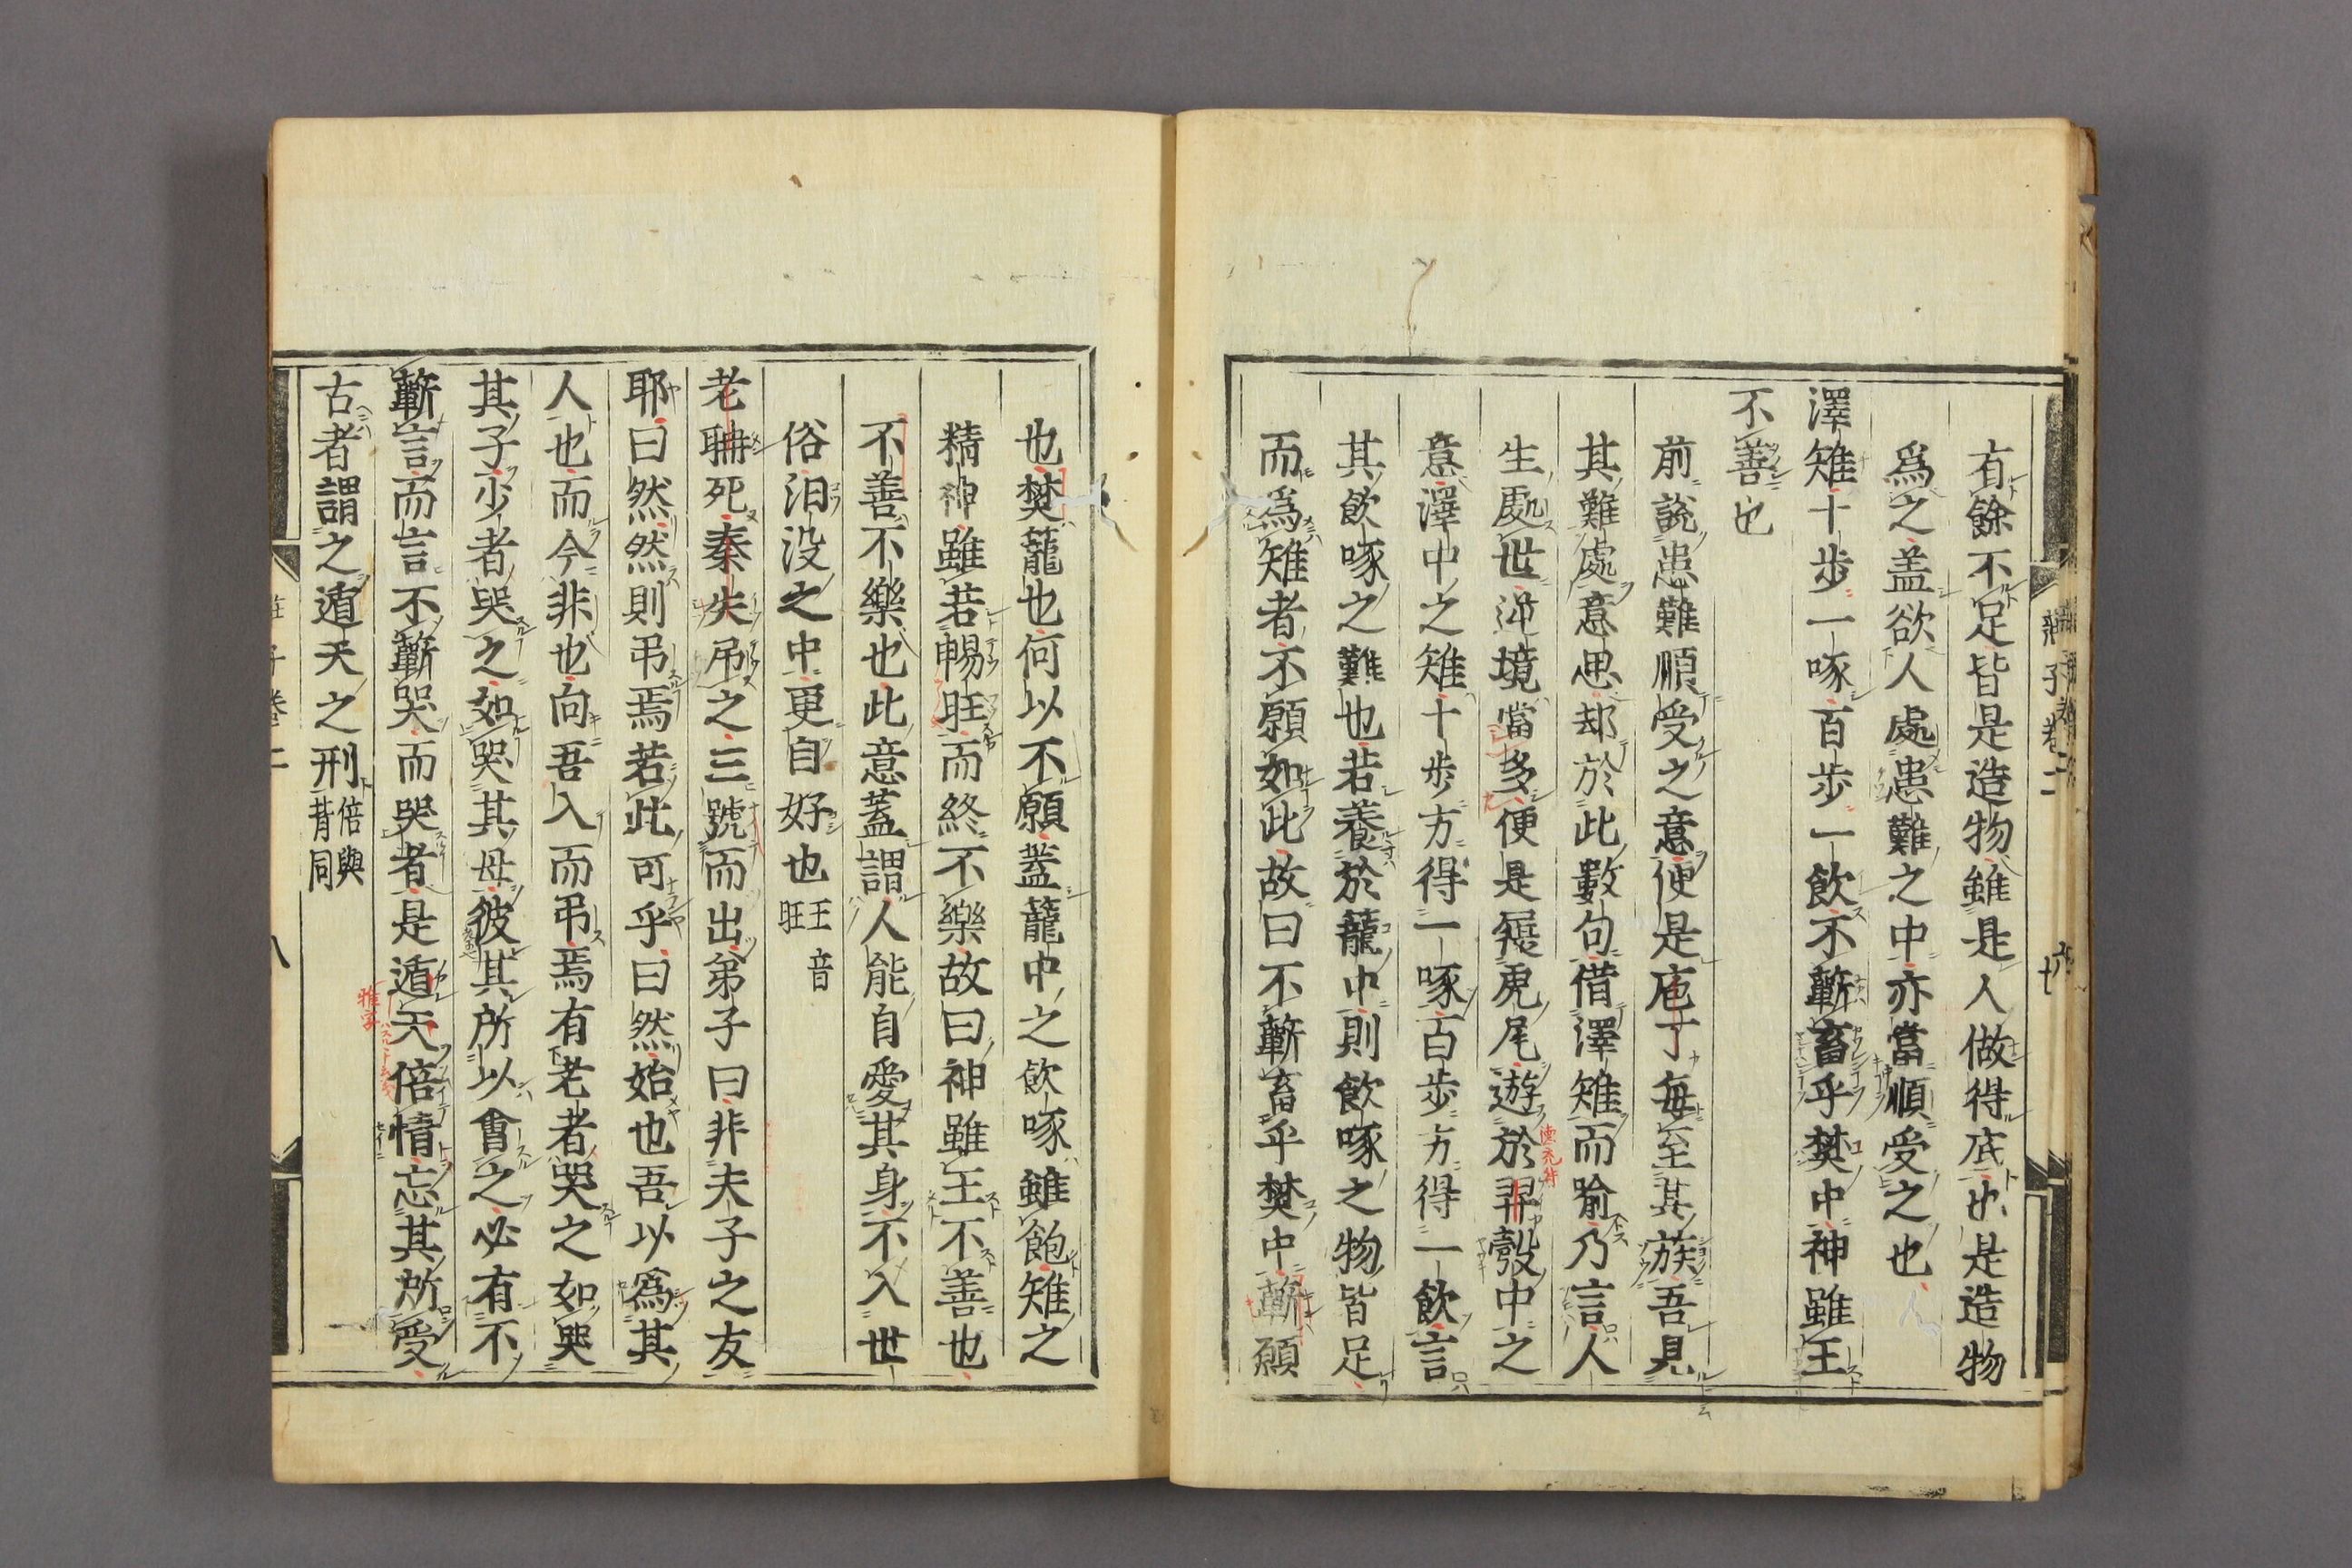 有餘不足皆是造物雖是人做得底也是造物
爲之盖欲人處患難之中亦當順受之也
澤雉十歩一啄百歩一飲不蘄畜乎樊中神雖王
不善也
前說患難順受之意便是庖丁每至其族吾見
其難處意思却於此數句借澤雉而喻乃言人
生處世逆境當多便是履虎尾遊於羿彀中之
意澤中之雉十歩方得一啄百歩方得一飲言
其飲啄之難也若養於籠中則飲啄之物皆足
而爲雉者不願如此故曰不蘄畜乎樊中蘄願
也樊籠也何以不願蓋籠中之飲啄雖飽雉之
精神雖若暢旺而終不樂故曰神雖王不善也
不善不樂也此意蓋謂人能自愛其身不入世
俗汨没之中更自好也王音
旺
老聃死秦失吊之三號而出弟子曰非夫子之友
耶曰然然則弔焉若此可乎曰然始也吾以爲其
人也而今非也向吾入而弔焉有老者哭之如哭
其子少者哭之如哭其母彼其所以會之必有不
蘄言而言不蘄哭而哭者是遁天倍情忘其所受
古者謂之遁天之刑倍與
背同
莊子卷二
八